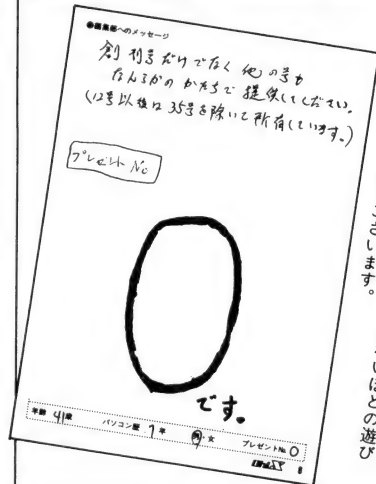 ●編集部へのメッセージ
創刊号だけでなく他の号も
なんらかのかたちで提供してください。
(12号以後は35号を除いて所有しています。)
プレゼントNo
0
です。
年齢 41歳 パソコン歴 7年 男・女 プレゼントNo. 0
8
ございます。
いほどの遊び